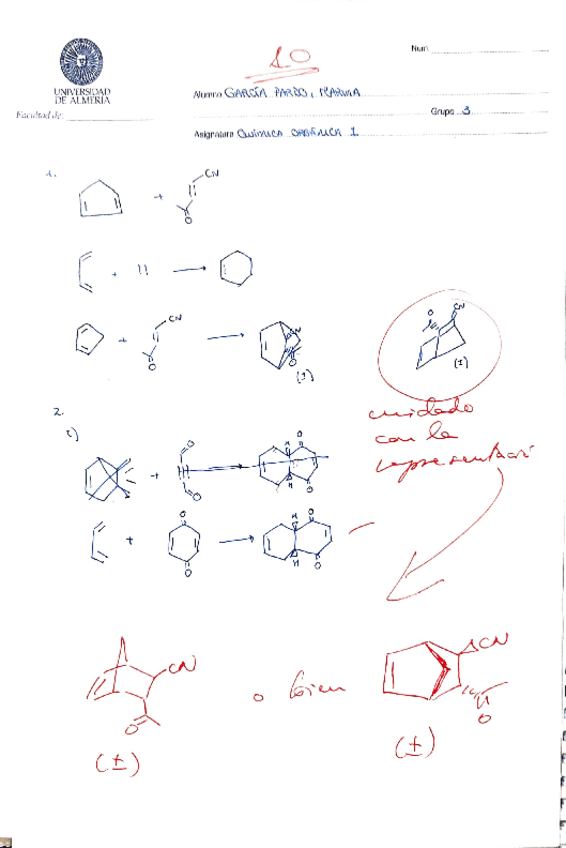 Num
10
UNIVERSIDAD
DE ALMERÍA
Nombre GARCÍA PARDO, MARINA
Facultad de:
Grupo 3
Asignatura QUÍMICA ORGÁNICA 1
1.
+ CN
O
+ !! →
+ CN O → CN O
(1)
O CN
(1)
cuidado
con la
representación
2.
1)
+ O O → H O H O
+ O O → H O H O
CN
O
(±)
o bien
CN
O
(±)